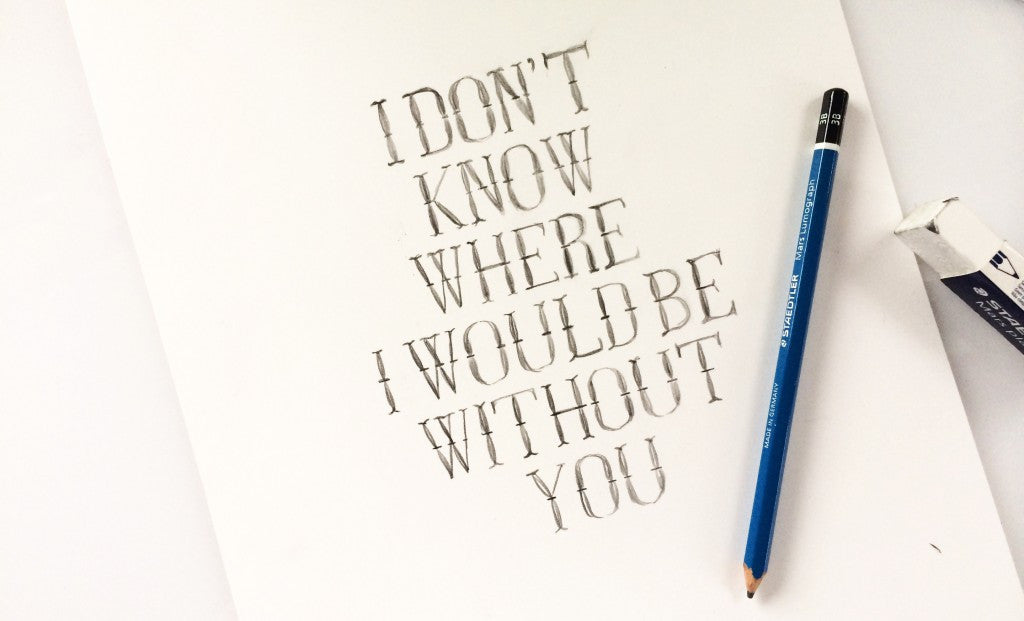 I DON'T
KNOW
WHERE
I WOULD BE
WITHOUT
YOU
3B 3B
Mars Lumograph
STAEDTLER
MADE IN GERMANY